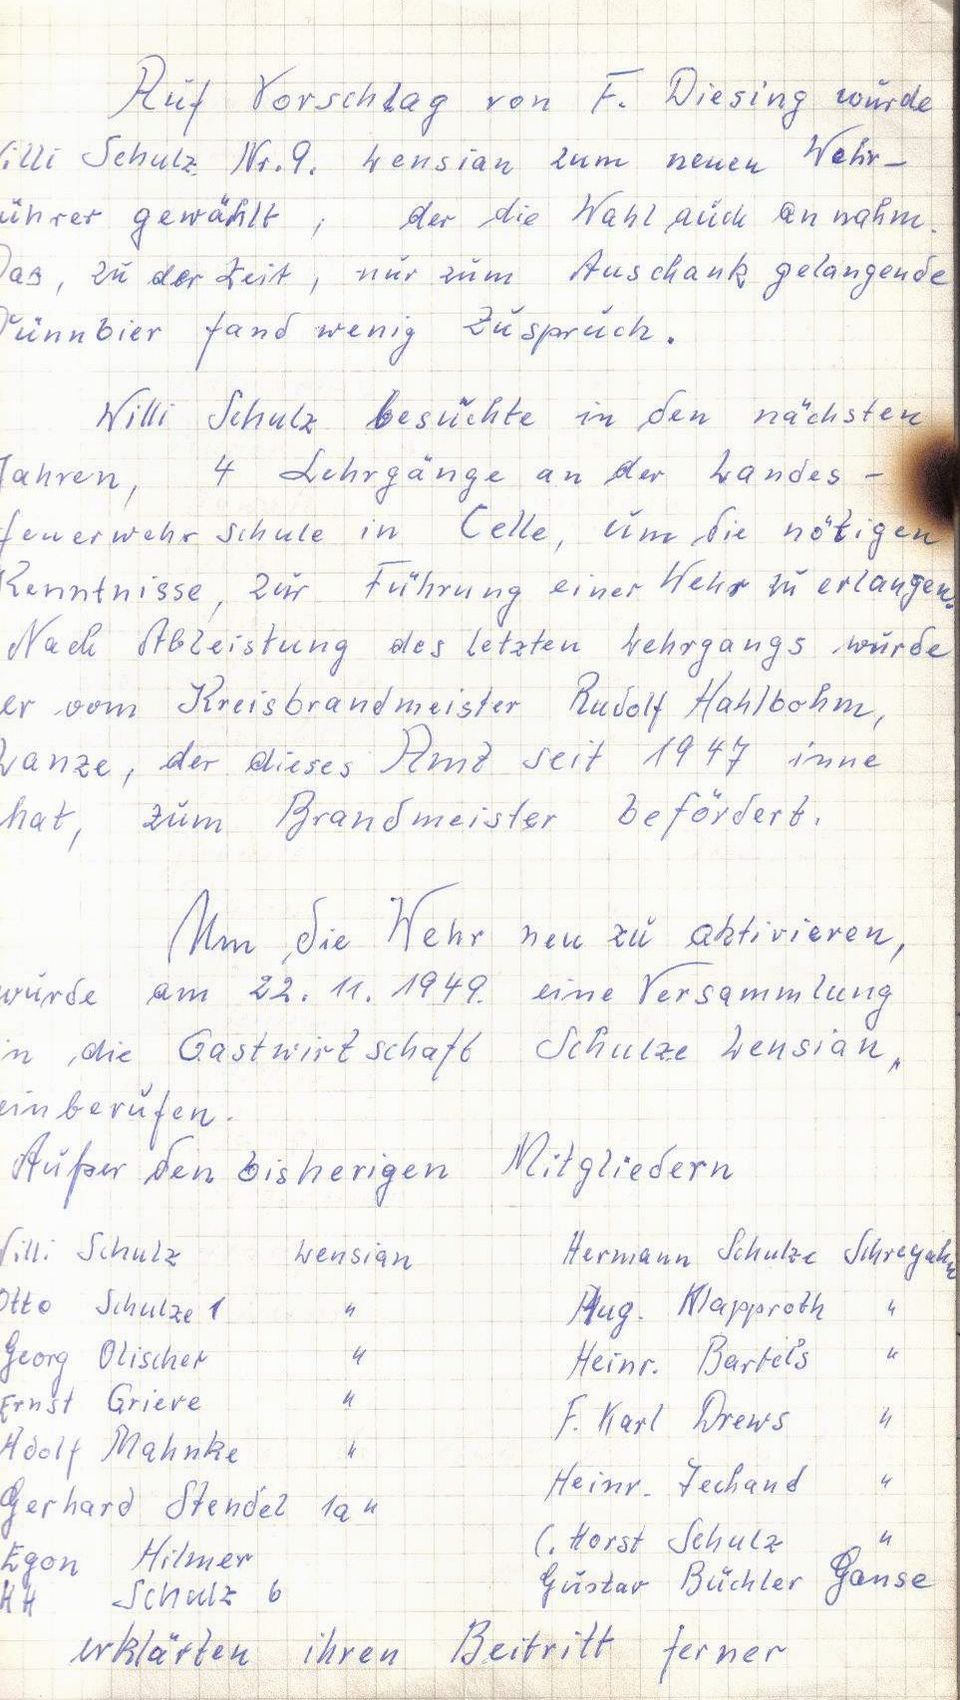 Auf Vorschlag von F. Diesing wurde
Willi Schulz Nr. 9. Lensian zum neuen Wehr-
führer gewählt, der die Wahl auch annahm.
Das, zu der Zeit, nur zum Auschank gelangende
Dünnbier fand wenig Zuspruch.
Willi Schulz besuchte in den nächsten
Jahren, 4 Lehrgänge an der Landes-
feuerwehrschule in Celle, um die nötigen
Kenntnisse, zur Führung einer Wehr zu erlangen.
Nach Ableistung des letzten Lehrgangs wurde
er vom Kreisbrandmeister Rudolf Hahlbohm,
Lanze, der dieses Amt seit 1947 inne
hat, zum Brandmeister befördert.
Um die Wehr neu zu aktivieren,
wurde am 22. 11. 1949. eine Versammlung
in die Gastwirtschaft Schulze Lensian,
einberufen.
Außer den bisherigen Mitgliedern
Willi Schulz Lensian Hermann Schulze Schreyahn
Otto Schulze 1 " Aug. Klapproth "
Georg Olischer " Heinr. Bartels "
Ernst Grieve " F. Karl Drews "
Adolf Mahnke " Heinr. "
Gerhard Stendel 1a " C. Horst Schulz "
Egon Hilmer Gustav Büchler Ganse
HH Schulz 6
erklärten ihren Beitritt ferner